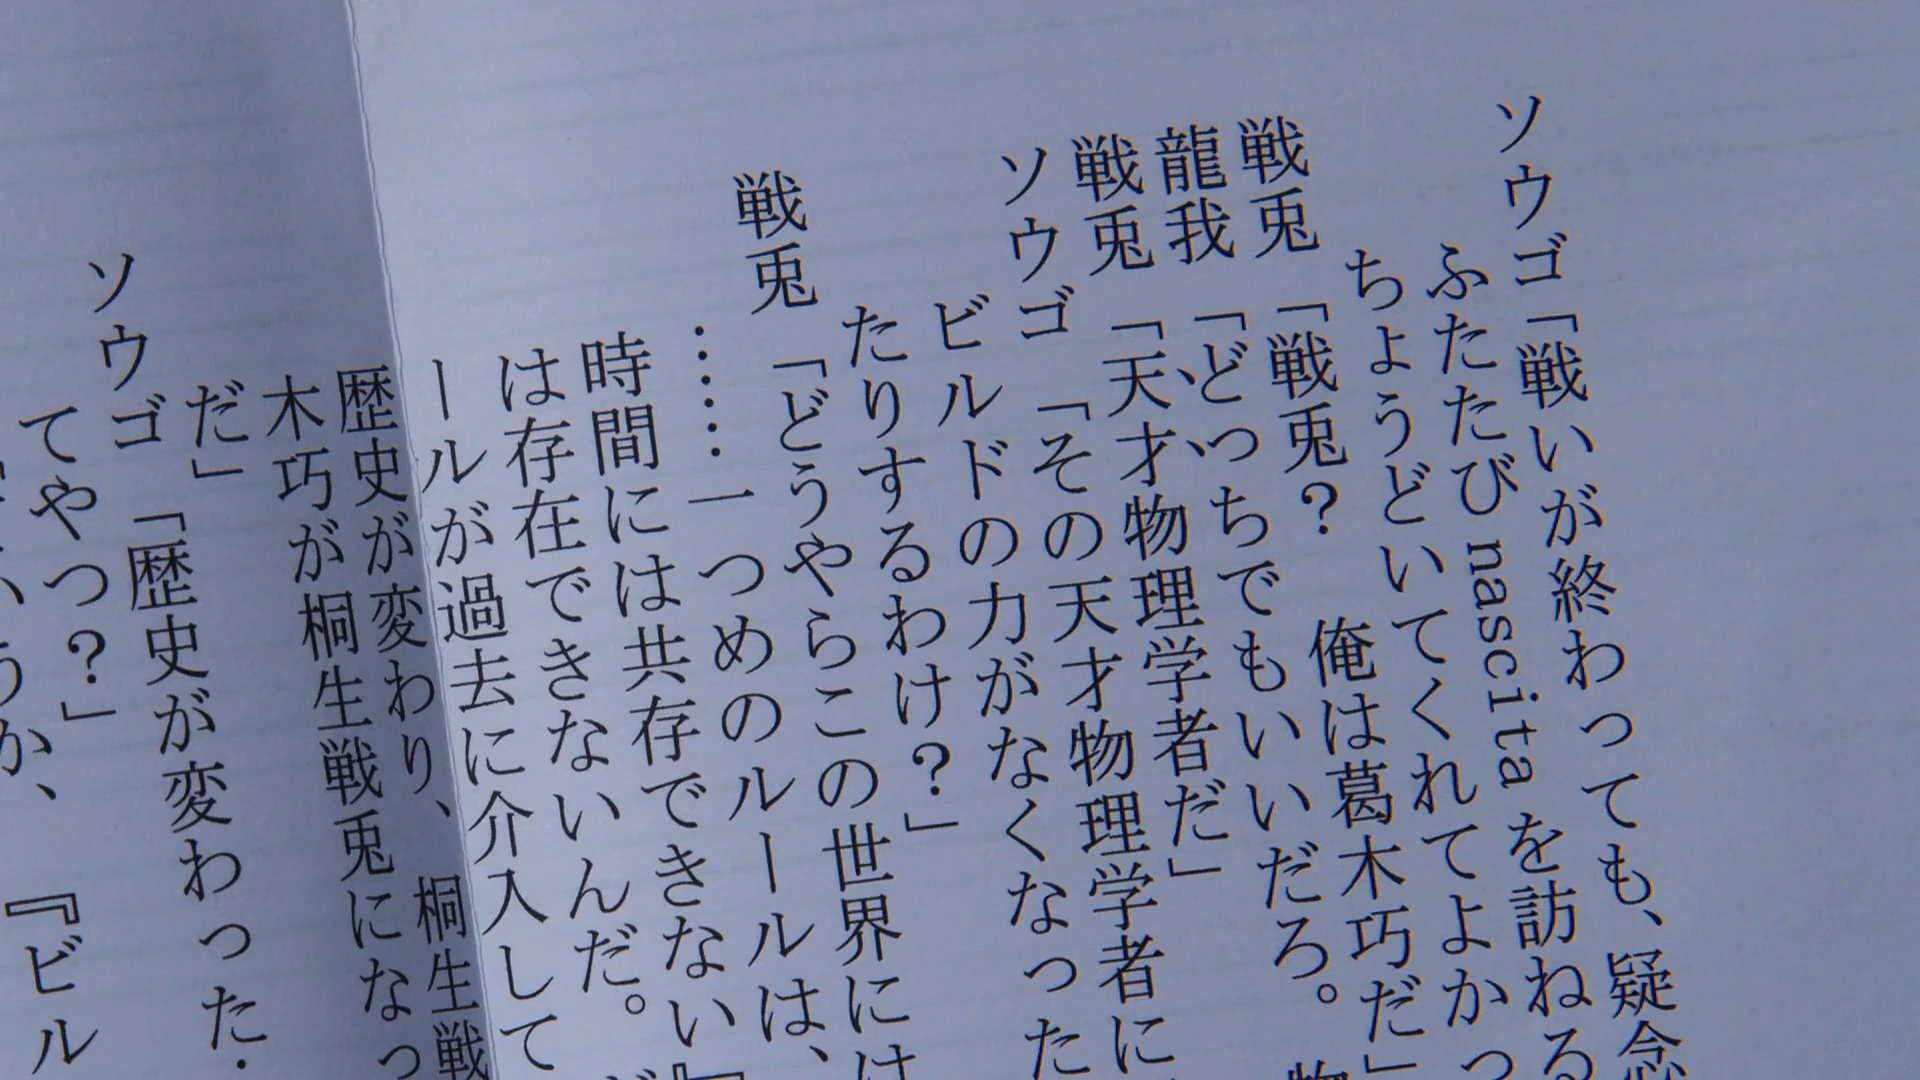 ソウゴ「戦いが終わっても、疑念
ふたたび nascita を訪ねる
ちょうどいてくれてよかっ
戦兎「戦兎？　俺は葛木巧だ」
龍我「どっちでもいいだろ。　物
戦兎「天才物理学者だ」
ソウゴ「その天才物理学者に
ビルドの力がなくなった
たりするわけ？」
戦兎「どうやらこの世界には
……一つめのルールは、
時間には共存できない『
は存在できないんだ。
ールが過去に介入して
歴史が変わり、桐生戦
木巧が桐生戦兎になっ
だ」
ソウゴ「歴史が変わった…
てやつ？」
うか、『ビル